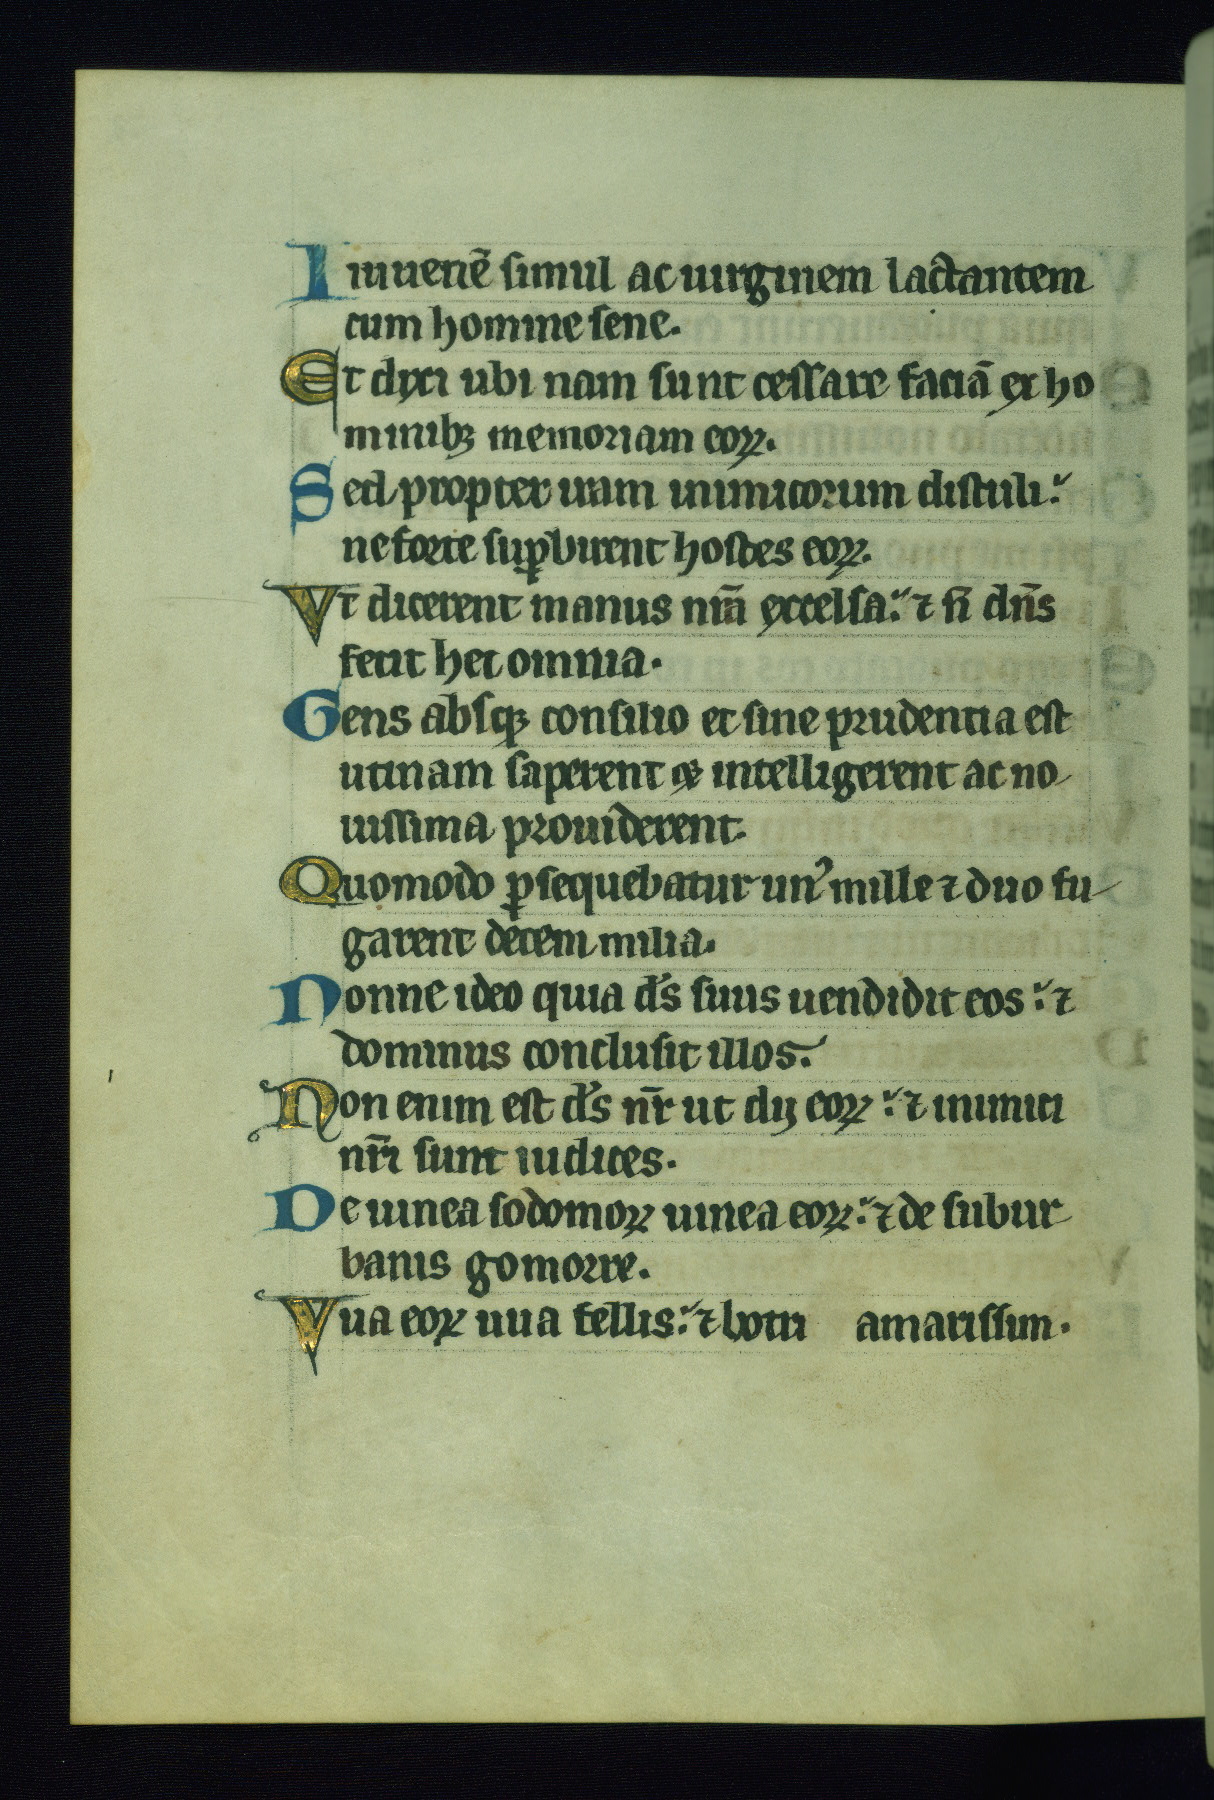 Iuuenē simul ac uirginem lactantem
cum homine sene.
Et dyxi ubi nam sunt cessare faciā ex ho
minibꝫ memoriam eoꝝ.
Sed propter iram inimicorum distuli:
ne forte suꝑbirent hostes eoꝝ.
Vt dicerent manus nr̄a excelsa: ⁊ n̄ dn̄s
fecit hec omnia.
Gens absqꝫ consilio et sine prudentia est
utinam saperent qꝫ intelligerent ac no
uissima prouiderent.
Quomodo ꝑsequebatur unꝰ mille ⁊ duo fu
garent decem milia.
Nonne ideo quia ds̄ suus uendidit eos: ⁊
dominus conclusit illos.
Non enim est ds̄ nr̄ ut dij eoꝝ: ⁊ inimici
nr̄i sunt iudices.
De uinea sodomoꝝ uinea eoꝝ: ⁊ de subur
banis gomorre.
Vua eoꝝ uua fellis: ⁊ botri amarissim.